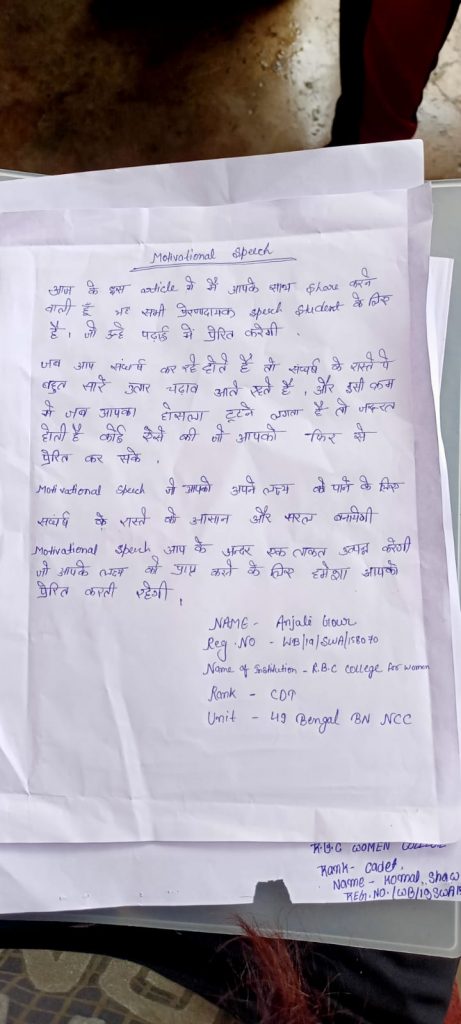 Motivational Speech
आज के इस article में मैं आपके साथ share करने
वाली हूँ यह सभी प्रेरणदायक speech student के लिए
है, जो उन्हे पढ़ाई में प्रेरित करेगी.
जब आप संघर्ष कर रहे होते है तो संघर्ष के रास्ते पे
बहुत सारे उतार चढ़ाव आते रहते है, और इसी क्रम
में जब आपका होसला टूटने लगता है तो जरूरत
होती है कोई ऐसे की जो आपको फिर से
प्रेरित कर सके.
Motivational speech जो आपको अपने लक्ष्य को पाने के लिए
संघर्ष के रास्ते को आसान और सरल बनायेगी
Motivational speech आप के अन्दर एक ताकत उत्पन्न करेगी
जो आपके लक्ष्य को प्राप्त करने के लिए हमेशा आपको
प्रेरित करती रहेगी.
NAME - Anjali Gour
Reg. NO - WB/19/SWA/158070
Name of Institution - R.B.C College for women
Rank - CDT
Unit - 49 Bengal BN NCC
R.B.C WOMEN COLLEGE
Rank - Cadet.
Name - Komal Shaw
REG. NO. /WB/19SWA/